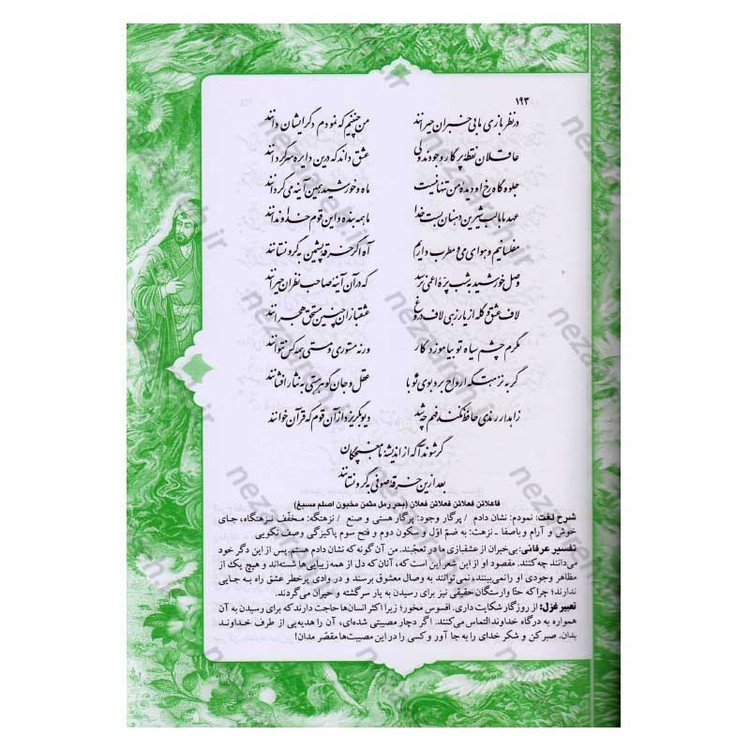 ۱۹۳
در نظربازی ما بی خبران حیرانند من چنینم که نمودم دگر ایشان دانند
عاقلان نقطه پرگار وجودند ولی عشق داند که درین دایره سرگردانند
جلوه گاه رخ او دیده من تنها نیست ماه و خورشید همین آینه می گردانند
عهد ما با لب شیرین دهنان بست خدا ما همه بنده و این قوم خداوندانند
مفلسانیم و هوای می و مطرب داریم آه اگر خرقه پشمین به گرو نستانند
وصل خورشید به شب پره اعمی نرسد که در آن آینه صاحب نظران حیرانند
لاف عشق و گله از یار زهی لاف دروغ عشقبازان چنین مستحق هجرانند
مگرم چشم سیاه تو بیاموزد کار ورنه مستوری و مستی همه کس نتوانند
گر به نزهتگه ارواح برد بوی تو باد عقل و جان گوهر هستی به نثار افشانند
زاهد ار رندی حافظ نکند فهم چه شد دیو بگریزد از آن قوم که قرآن خوانند
گر شوند آگه از اندیشه ما مغبچگان
بعد ازین خرقه صوفی به گرو نستانند
فاعلاتن فعلاتن فعلاتن فعلان (بحر رمل مثمن مخبون اصلم مسبغ)
شرح لغت: نمودم: نشان دادم / پرگار وجود: پرگار هستی و صنع / نزهتگه: مخفّف نزهتگاه، جای
خوش و آرام و باصفا ـ نزهت: به ضمّ اوّل و سکون دوم و فتح سوم پاکیزگی وصف نکویی
تفسیر عرفانی: بی‌خبران از عشقبازی ما در تعجّبند. من آن گونه که نشان دادم هستم. پس از این دگر خود
می‌دانند چه‌کنند. مقصود او از این شعر این است که، آنان که دل از همه زیبایی‌ها شسته‌اند و هیچ یک از
مظاهر وجودی او را نمی‌بینند، نمی‌توانند به وصال معشوق برسند و در وادی پرخطر عشق راه به جایی
ندارند؛ چرا که حتّا وارستگان حقیقی نیز برای رسیدن به یار سرگشته و حیران می‌گردند.
تعبیر غزل: از روزگار شکایت داری. افسوس مخور؛ زیرا اکثر انسان‌ها حاجت دارند که برای رسیدن به آن
همواره به درگاه خداوند التماس می‌کنند. اگر دچار مصیبتی شده‌ای، آن را هدیه‌یی از طرف خداوند
بدان. صبر کن و شکر خدای را به جا آور و کسی را در این مصیبت‌ها مقصّر مدان!
nezareh.ir